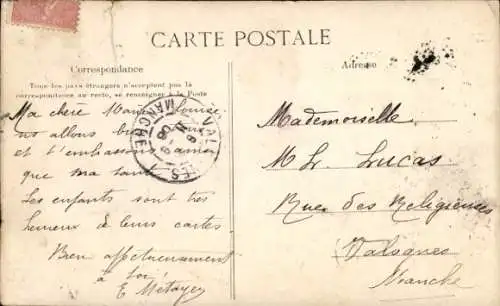 CARTE POSTALE
Correspondance
Adresse
Tous les pays étrangers n'acceptent pas la
correspondance au recto, se renseigner à la Poste
VALOGNES
MANCHE
Ma chère Marie Louise
nous allons bien
et t'embrassons ainsi
que ma tante
Les enfants sont très
heureux de leurs cartes
Bien affectueusement
à toi
E Métayer
Mademoiselle
M L. Lucas
Rue des Religieuses
Valognes
Manche